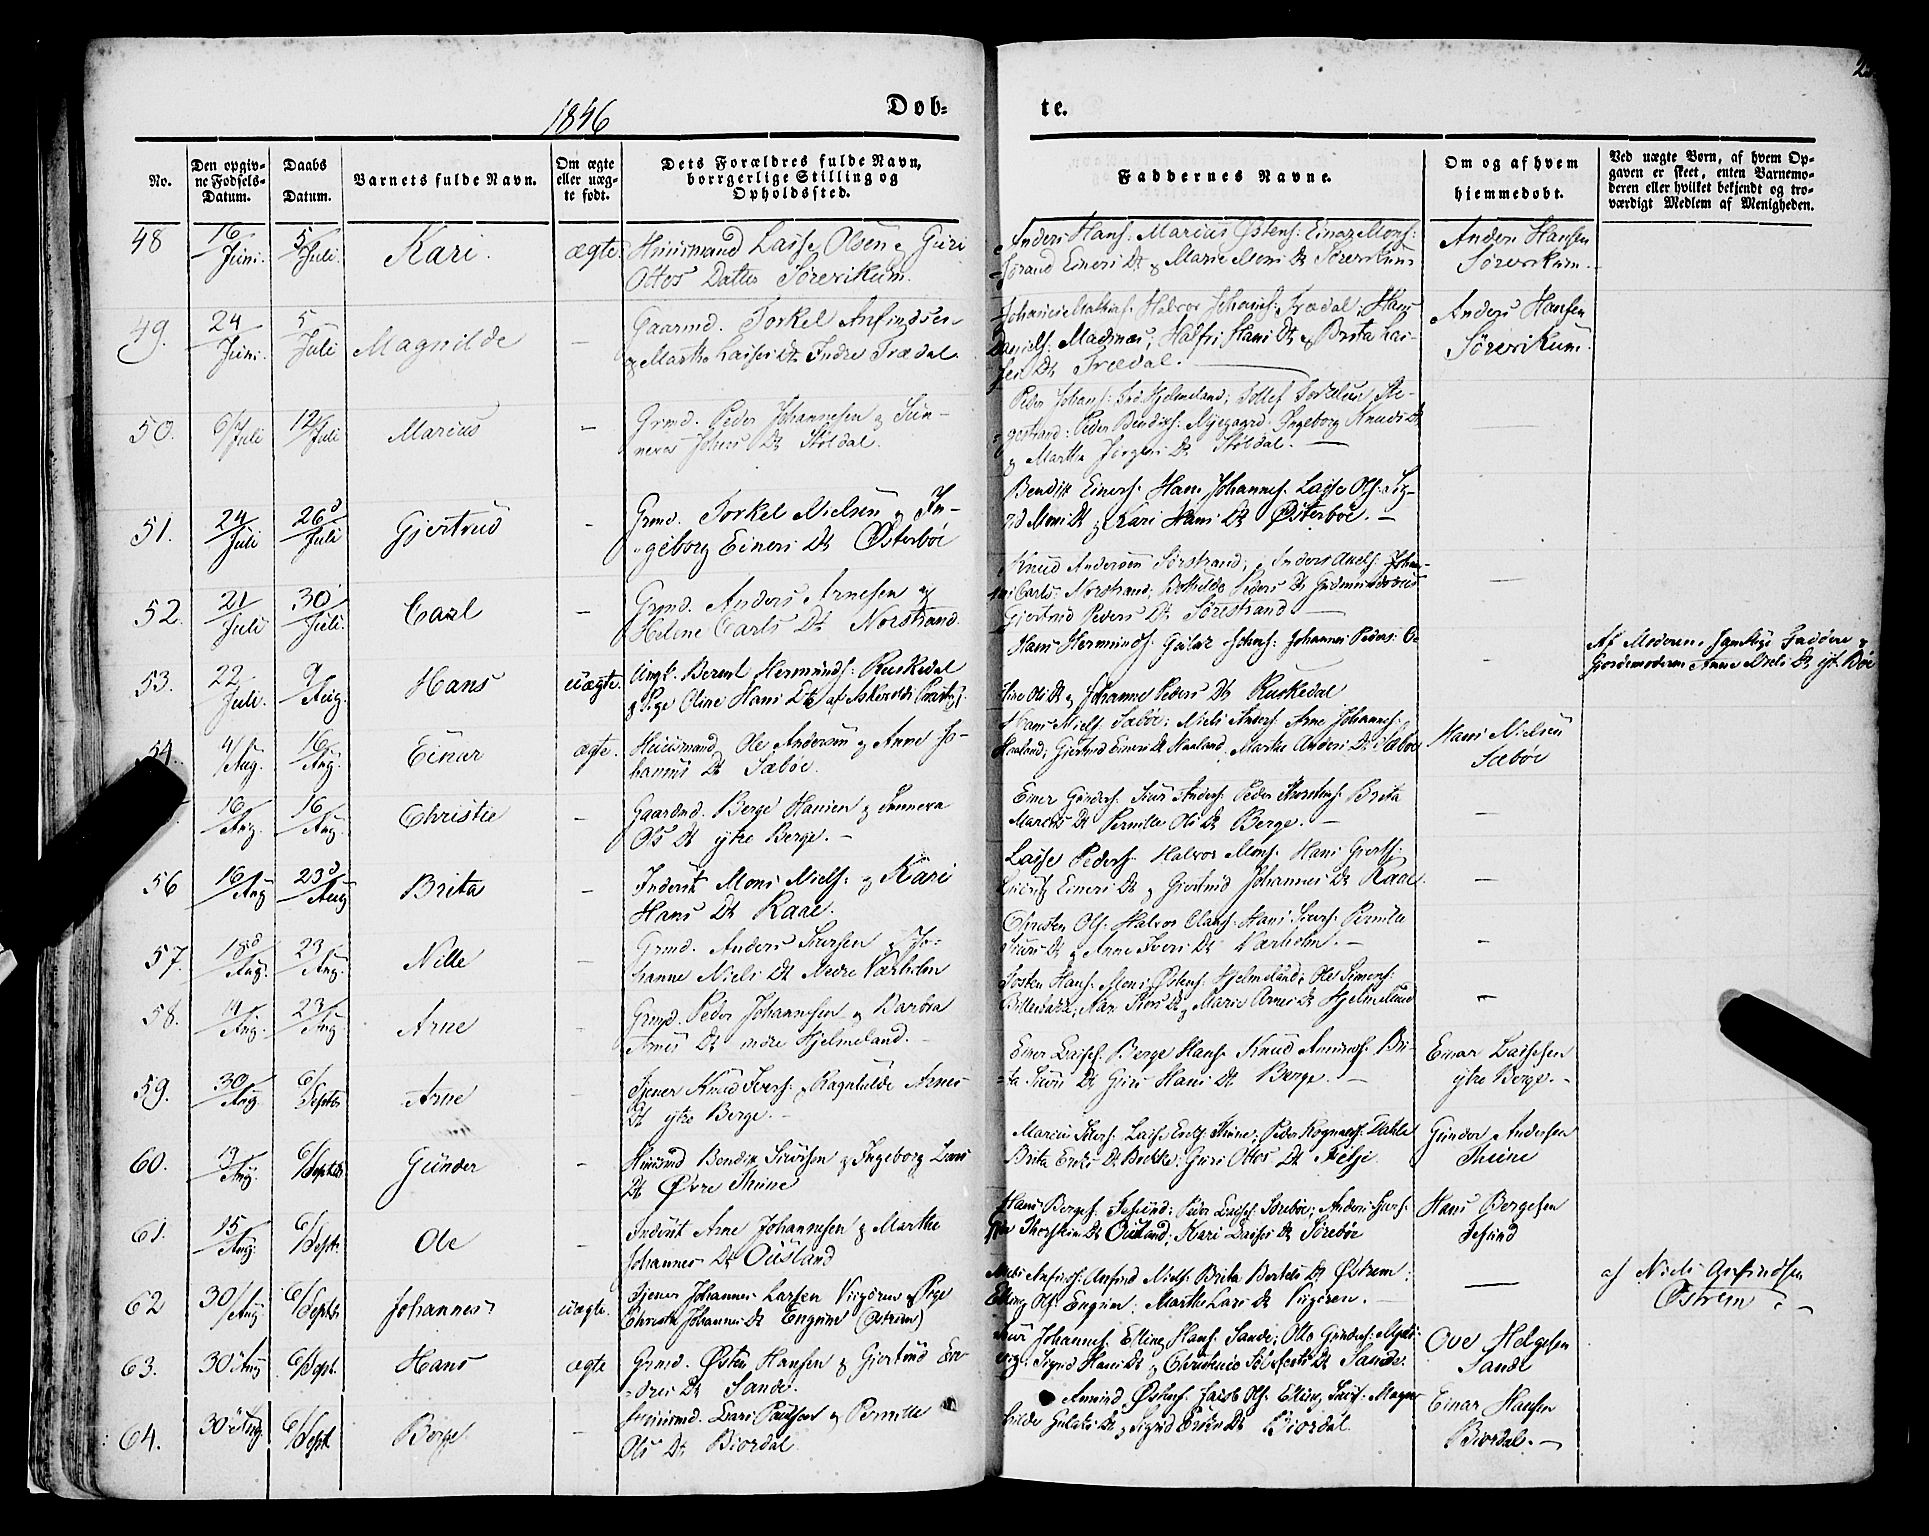 1846
Døb-
te.
No.
Den opgiv-
ne Fødsels-
Datum.
Daabs
Datum.
Barnets fulde Navn.
Om ægte
eller uæg-
te født.
Dets Forældres fulde Navn,
borrgerlige Stilling og
Opholdssted.
Faddernes Navne.
Om og af hvem
hjemmedøbt.
Ved uægte Børn, af hvem Op-
gaven er skeet, enten Barnemo-
deren eller hvilket bekjendt og tro-
værdigt Medlem af Menigheden.
48
16/Juni.
5/Juli.
Kari.
ægte.
Huusmand Lasse Olsen & Guri
Ottos Datter Sørevikum.
Anders Hans: Marius Østens: Einar Mons:
Einers Dt & Marie Mons Dt Sørevikum
Anders Hansen
Sørevikum.
49.
24/Juni.
5/Juli
Magnilde
-
Gaarmd. Torkel Anfindsen
& Martha Lasses Dt Indre Trædal.
Halvor Johanes: Trædal; Hans
Daniels: Hans Dt & Brita Las-
ses Dt Trædal.
Anders Hansen
Sørevikum.
50.
6/Juli
12/Juli
Marius
-
Grmd. Peder Johannesen & Sün-
neva Johans Dt Stöldal.
Peder Johans: Hjelmeland; Tollef Torkelsen
Peder Bendixs: Nyegaard: Ingeborg Knuds Dt
& Martha Jörgens Dt Stöldal. -
51.
24/Juli
26d/Juli
Gjertrud
-
Grmd. Torkel Nielsen & In-
geborg Einers Dt Østerböe
Bendix Einers: Hans Johannes: Lasse Ols: Sig-
rid Mons Dt & Kari Hans Dt Østerböe. -
52.
21/Juli
30/Juli.
Carl
-
Grmd. Anders Arnesen og
Helene Carls Dt Norstrand.
Knud Andersen Sörstrand; Anders Johan-
Carls: Norstrand; Peders Dt
Gjertrud Peders Dt Sörestrand -
53.
22/Juli.
9/Aug
Hans
uægte.
Ungk. Berent Hermunds: Ruskedal
& Pige Oline Hans Dt af Askevolds Præstegj.
Hans Hermunds: Johans: Johannes Peders: O-
line Ols Dt & Johanne Peders Dt Ruskedal
-
Af Moderen, samtlige Faddere &
Gjordemoderen Anne Niels Dt yt. Böe
54.
4/Aug.
16/Aug.
Einar
ægte.
Huusmand Ole Andersen & Anne Jo-
hannis Dt Sæböe.
Hans Niels: Sæböe: Niels Anders: Arne Johannes:
Haaland; Gjertrud Einers Dt Haaland, Martha Anders Dt Sæböe
Hans Nielsen
Sæböe
16/Aug.
16/Aug.
Christie
-
Gaardmd. Berge Hansen & Sunneva
Ols Dt ytre Berge. -
Einer Gunders: Siur Anders: Peder Thorsteins: Brita
Marius Dt Pernille Ols Dt Berge. -
-
56
16/Aug
23d/Aug
Brita
-
Inderst Mons Niels: & Kari
Hans Dt Raae.
Lasse Peders: Halvor Mons: Hans Gjerts:
Einers Dt & Gjertrud Johannes Dt Raae.
-
57.
18d/Aug.
23/Aug.
Nille
-
Grmd. Anders Iversen & Jo-
hanne Niels Dt Nedre Værholm
Christen Ols: Halvor Olaus: Hans Ivers: Pernille
Siurs Dt & Anne Ivers Dt Værholm. -
-
58.
14/Aug.
23/Aug.
Arne
-
Grmd. Peder Johannesen & Barbra
Arnes Dt indre Hjelmeland. -
Josten Hans: Mons Østens: Hjelmeland; Ole Simens:
& Marie Arnes Dt Hjelmeland
-
59.
30/Aug.
6/Septbr
Arne
-
Tjener Knud Ivers: & Ragnhilde Arnes
Dt ytre Berge. -
Einer Lasses: Berge Hans: Knud Amunds: Bri-
ta Siurs Dt Guri Hans Dt Berge. -
Einar Lassesen
ytre Berge. -
60.
19/Aug.
6/Septbr
Günder
-
Huusmd Bendix Siversen & Ingeborg Lars
Dt Øvre Thüne
Marius Ivers: Lasse Ericks: Thune; Peder Dahle
Brita Ericks Dt Bekke: Guri Ottos Dt
Günder Andersen
Thüne
61.
15/Aug.
6/Septr
Ole
-
Inderst Arne Johannesen & Marthe
Johannes Dt Ousland
Hans Berges: Tesünd; Peder Lasses: Sörebøe; Anders Ivers:
Thorstein Dt Ousland; Kari Lasses Dt Sörebøe
Hans Bergesen
Tesünd
62
30/Aug
6/Septbr
Johannes
uægte.
Tjener Johannes Larsen Virgören & Pige
Christi Johannes Dt Engum (Østrem)
Niels Anfinds: Anfind Niels: Brita Bertels Dt Østrem:
Elling Ols: Engum: Marthe Lars Dt Virgören. -
-
af Niels Anfindsen
Østrem -
63.
30te Aug
6/Sept.
Hans
ægte
Grmd. Østen Hansen & Gjertrud En-
dres Dt Sande.
Johannes: Elling Hans: Sande; Otto Gunders:
Sigrid Hans Dt & Christense Dt Sande.
Ove Helgesen
Sande
64.
30te Aug.
6/Sept
Berge
-
Huusmd. Lars Paulsen & Pernille
Ols Dt Biordal
Amund Østens: Jacob Ols: Elling Magn-
hilde Dt & Sigrid Dt Biordal
Einar Hansen
Biordal. -